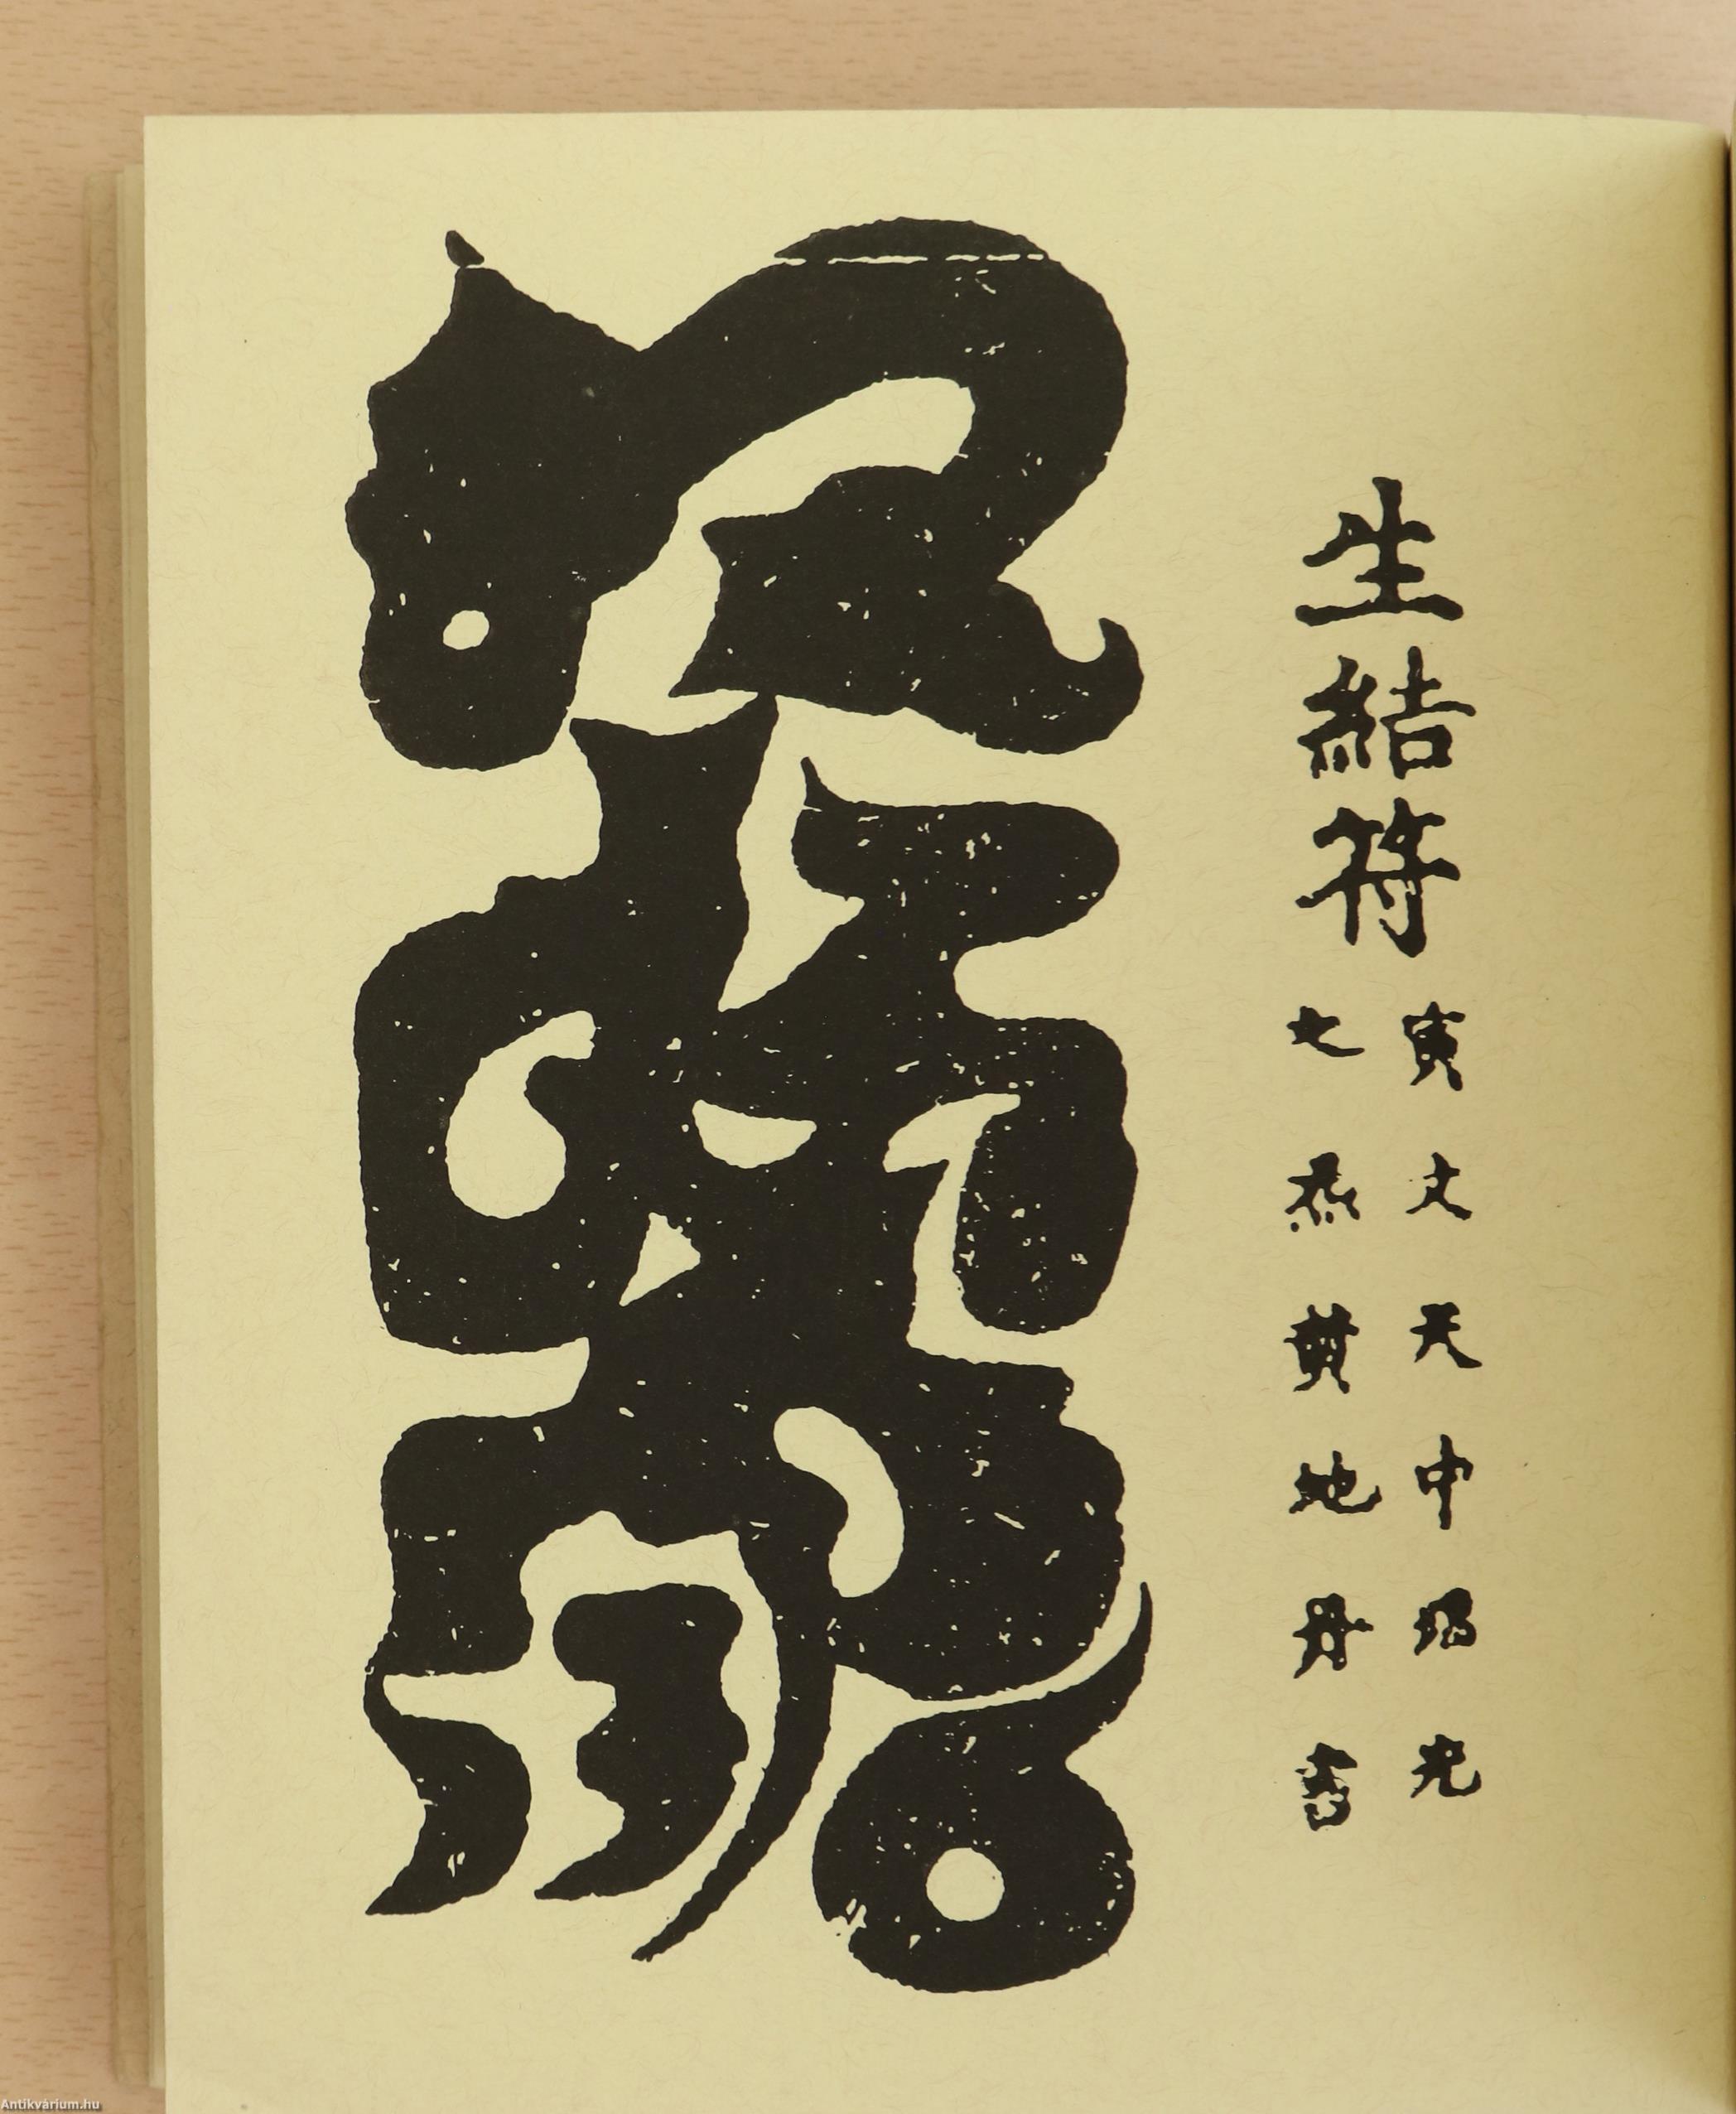 生結符
寅文天中陽光
之炁黃地丹書
Antikvárium.hu